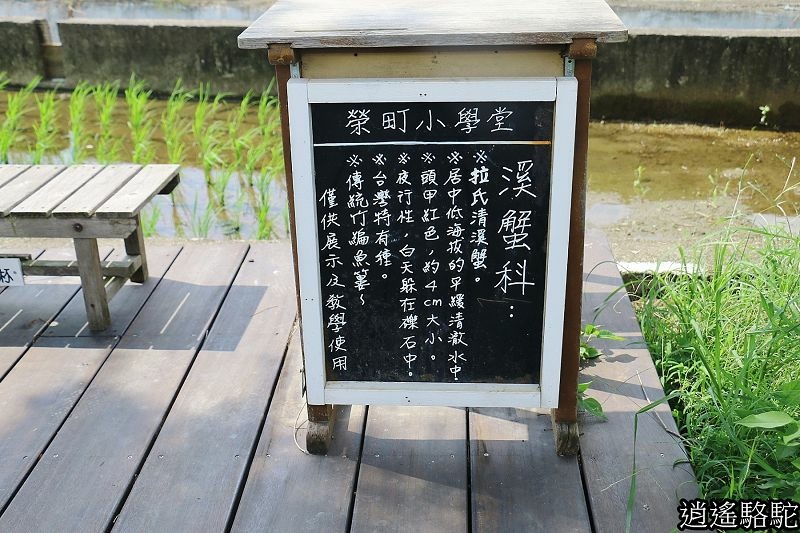 榮町小學堂
溪蟹科：
※拉氏清溪蟹。
※居中低海拔的平緩清澈水中
※頭甲紅色，約4cm大小。
※夜行性，白天躲在礫石中。
※台灣特有種。
※傳統竹編魚簍~
僅供展示及教學使用
杯
逍遙駱駝